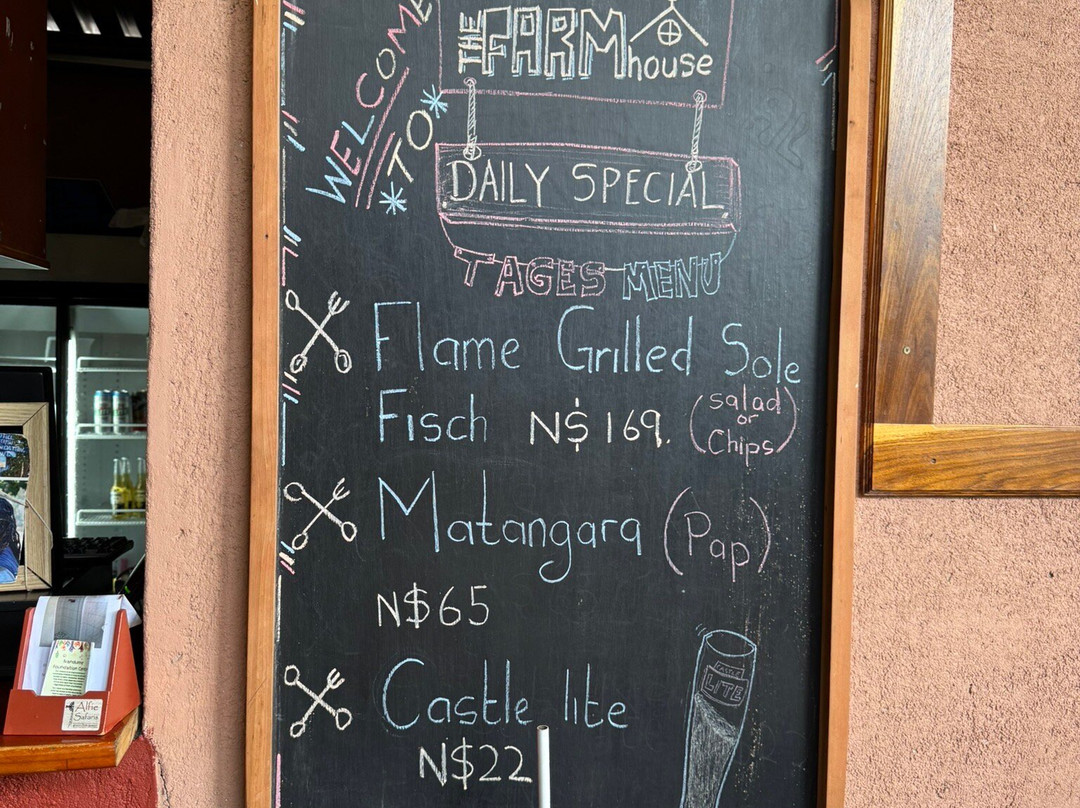 WELCOME
*TO*
THE FARMhouse
DAILY SPECIAL
TAGES MENU
Flame Grilled Sole
Fisch N$169. (salad or Chips)
Matangara (Pap)
N$65
Castle lite
N$22
CASTLE
LITE
Alfie
Safaris